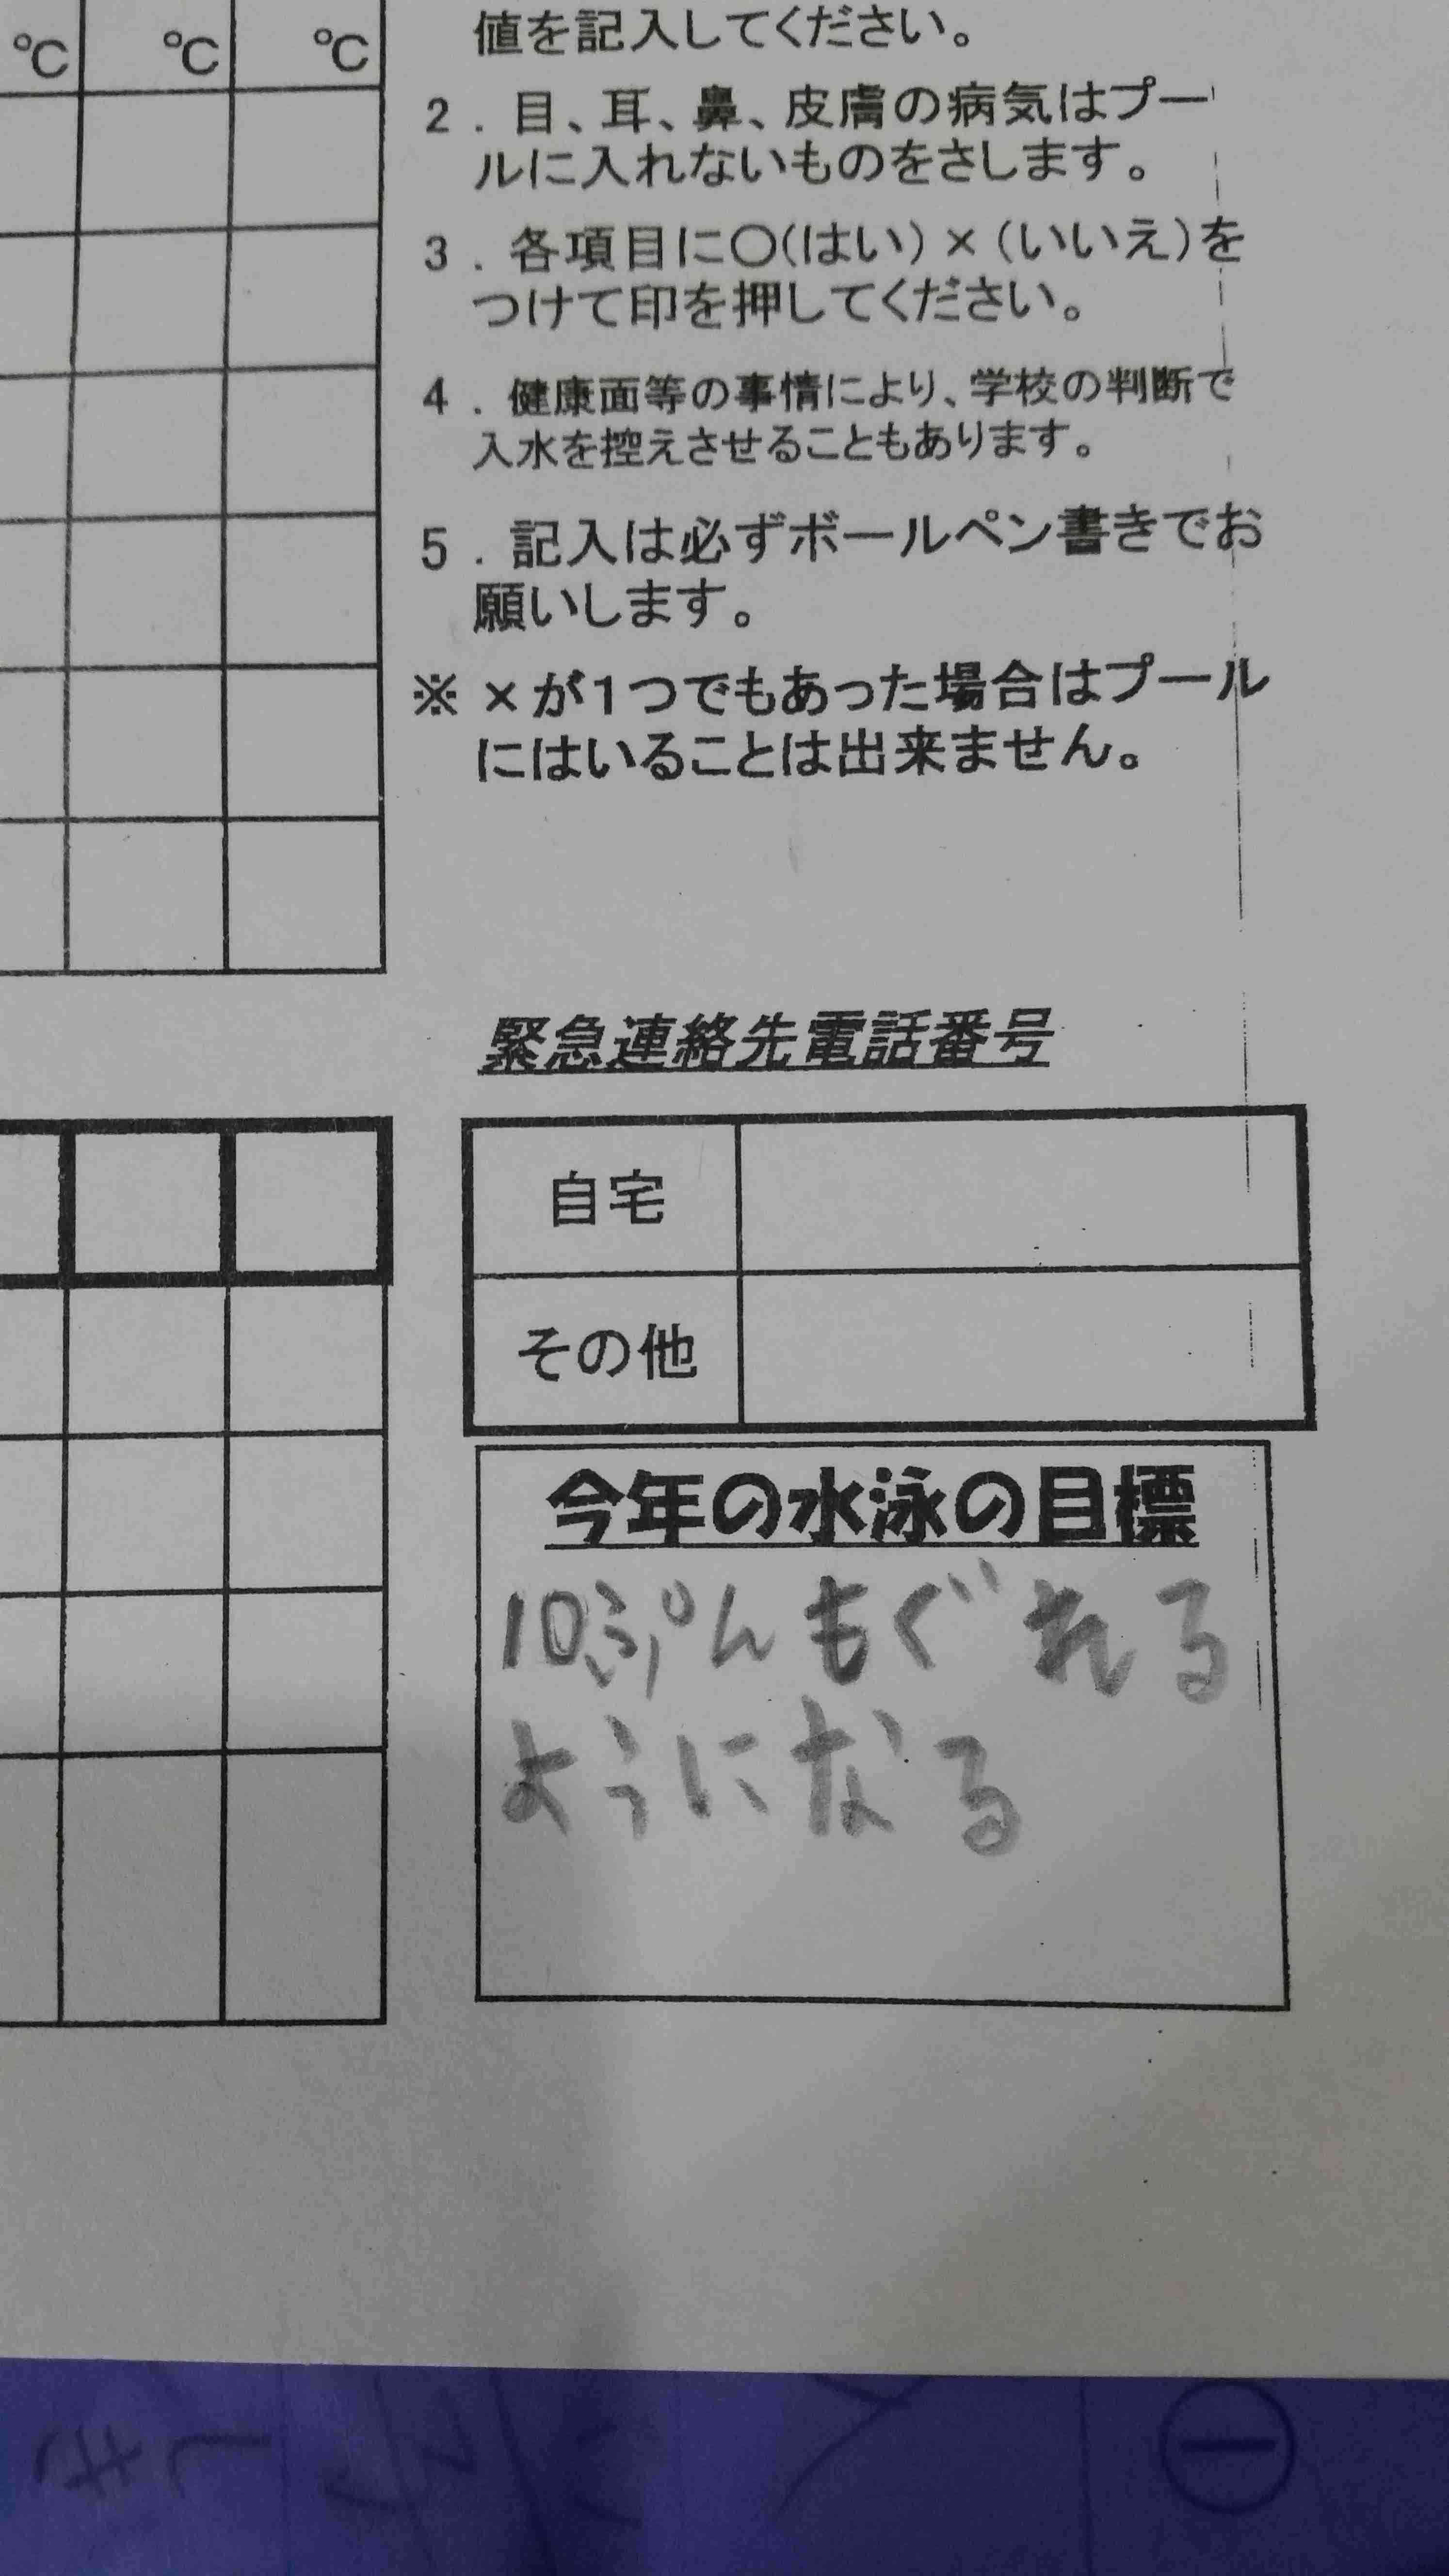 ℃ ℃ ℃
値を記入してください。
2．目、耳、鼻、皮膚の病気はプー
ルに入れないものをさします。
3．各項目に〇(はい)×(いいえ)を
つけて印を押してください。
4．健康面等の事情により、学校の判断で
入水を控えさせることもあります。
5．記入は必ずボールペン書きでお
願いします。
※ ×が1つでもあった場合はプール
にはいることは出来ません。
緊急連絡先電話番号
自宅
その他
今年の水泳の目標
10ぷんもぐれる
ようになる